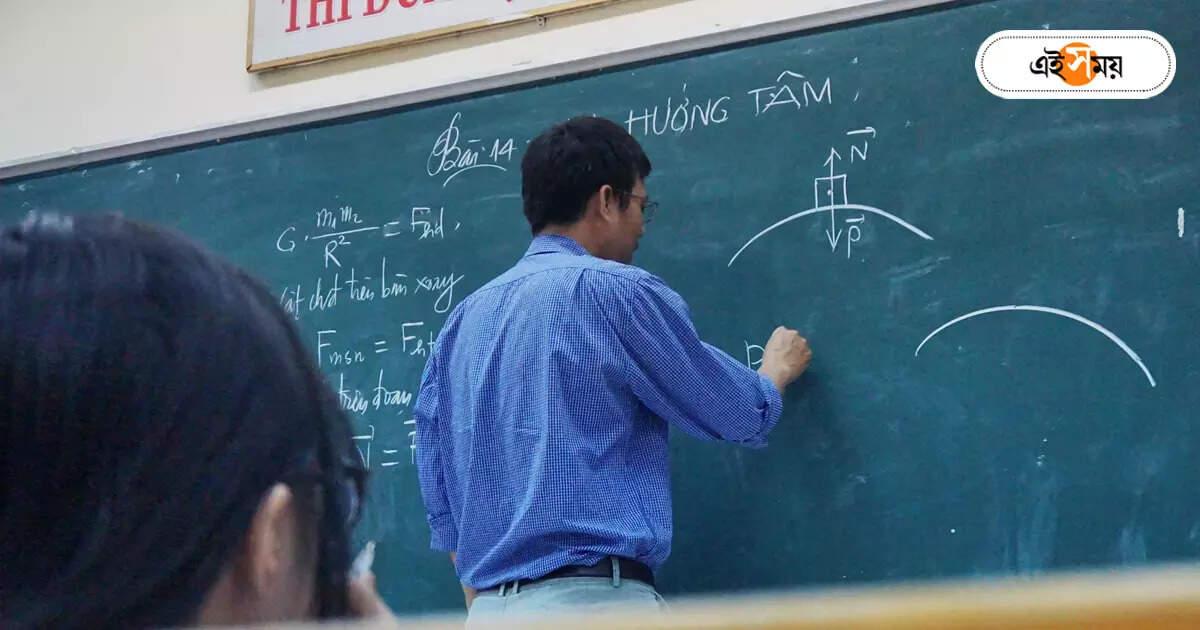 THI Đ
এই সময়
Bài 14 HƯỚNG TÂM
N
P
G. m₁m₂ / R² = Fhd
vật chất trên bàn xoay
Fmsn = Fht
trên đoạn
N =